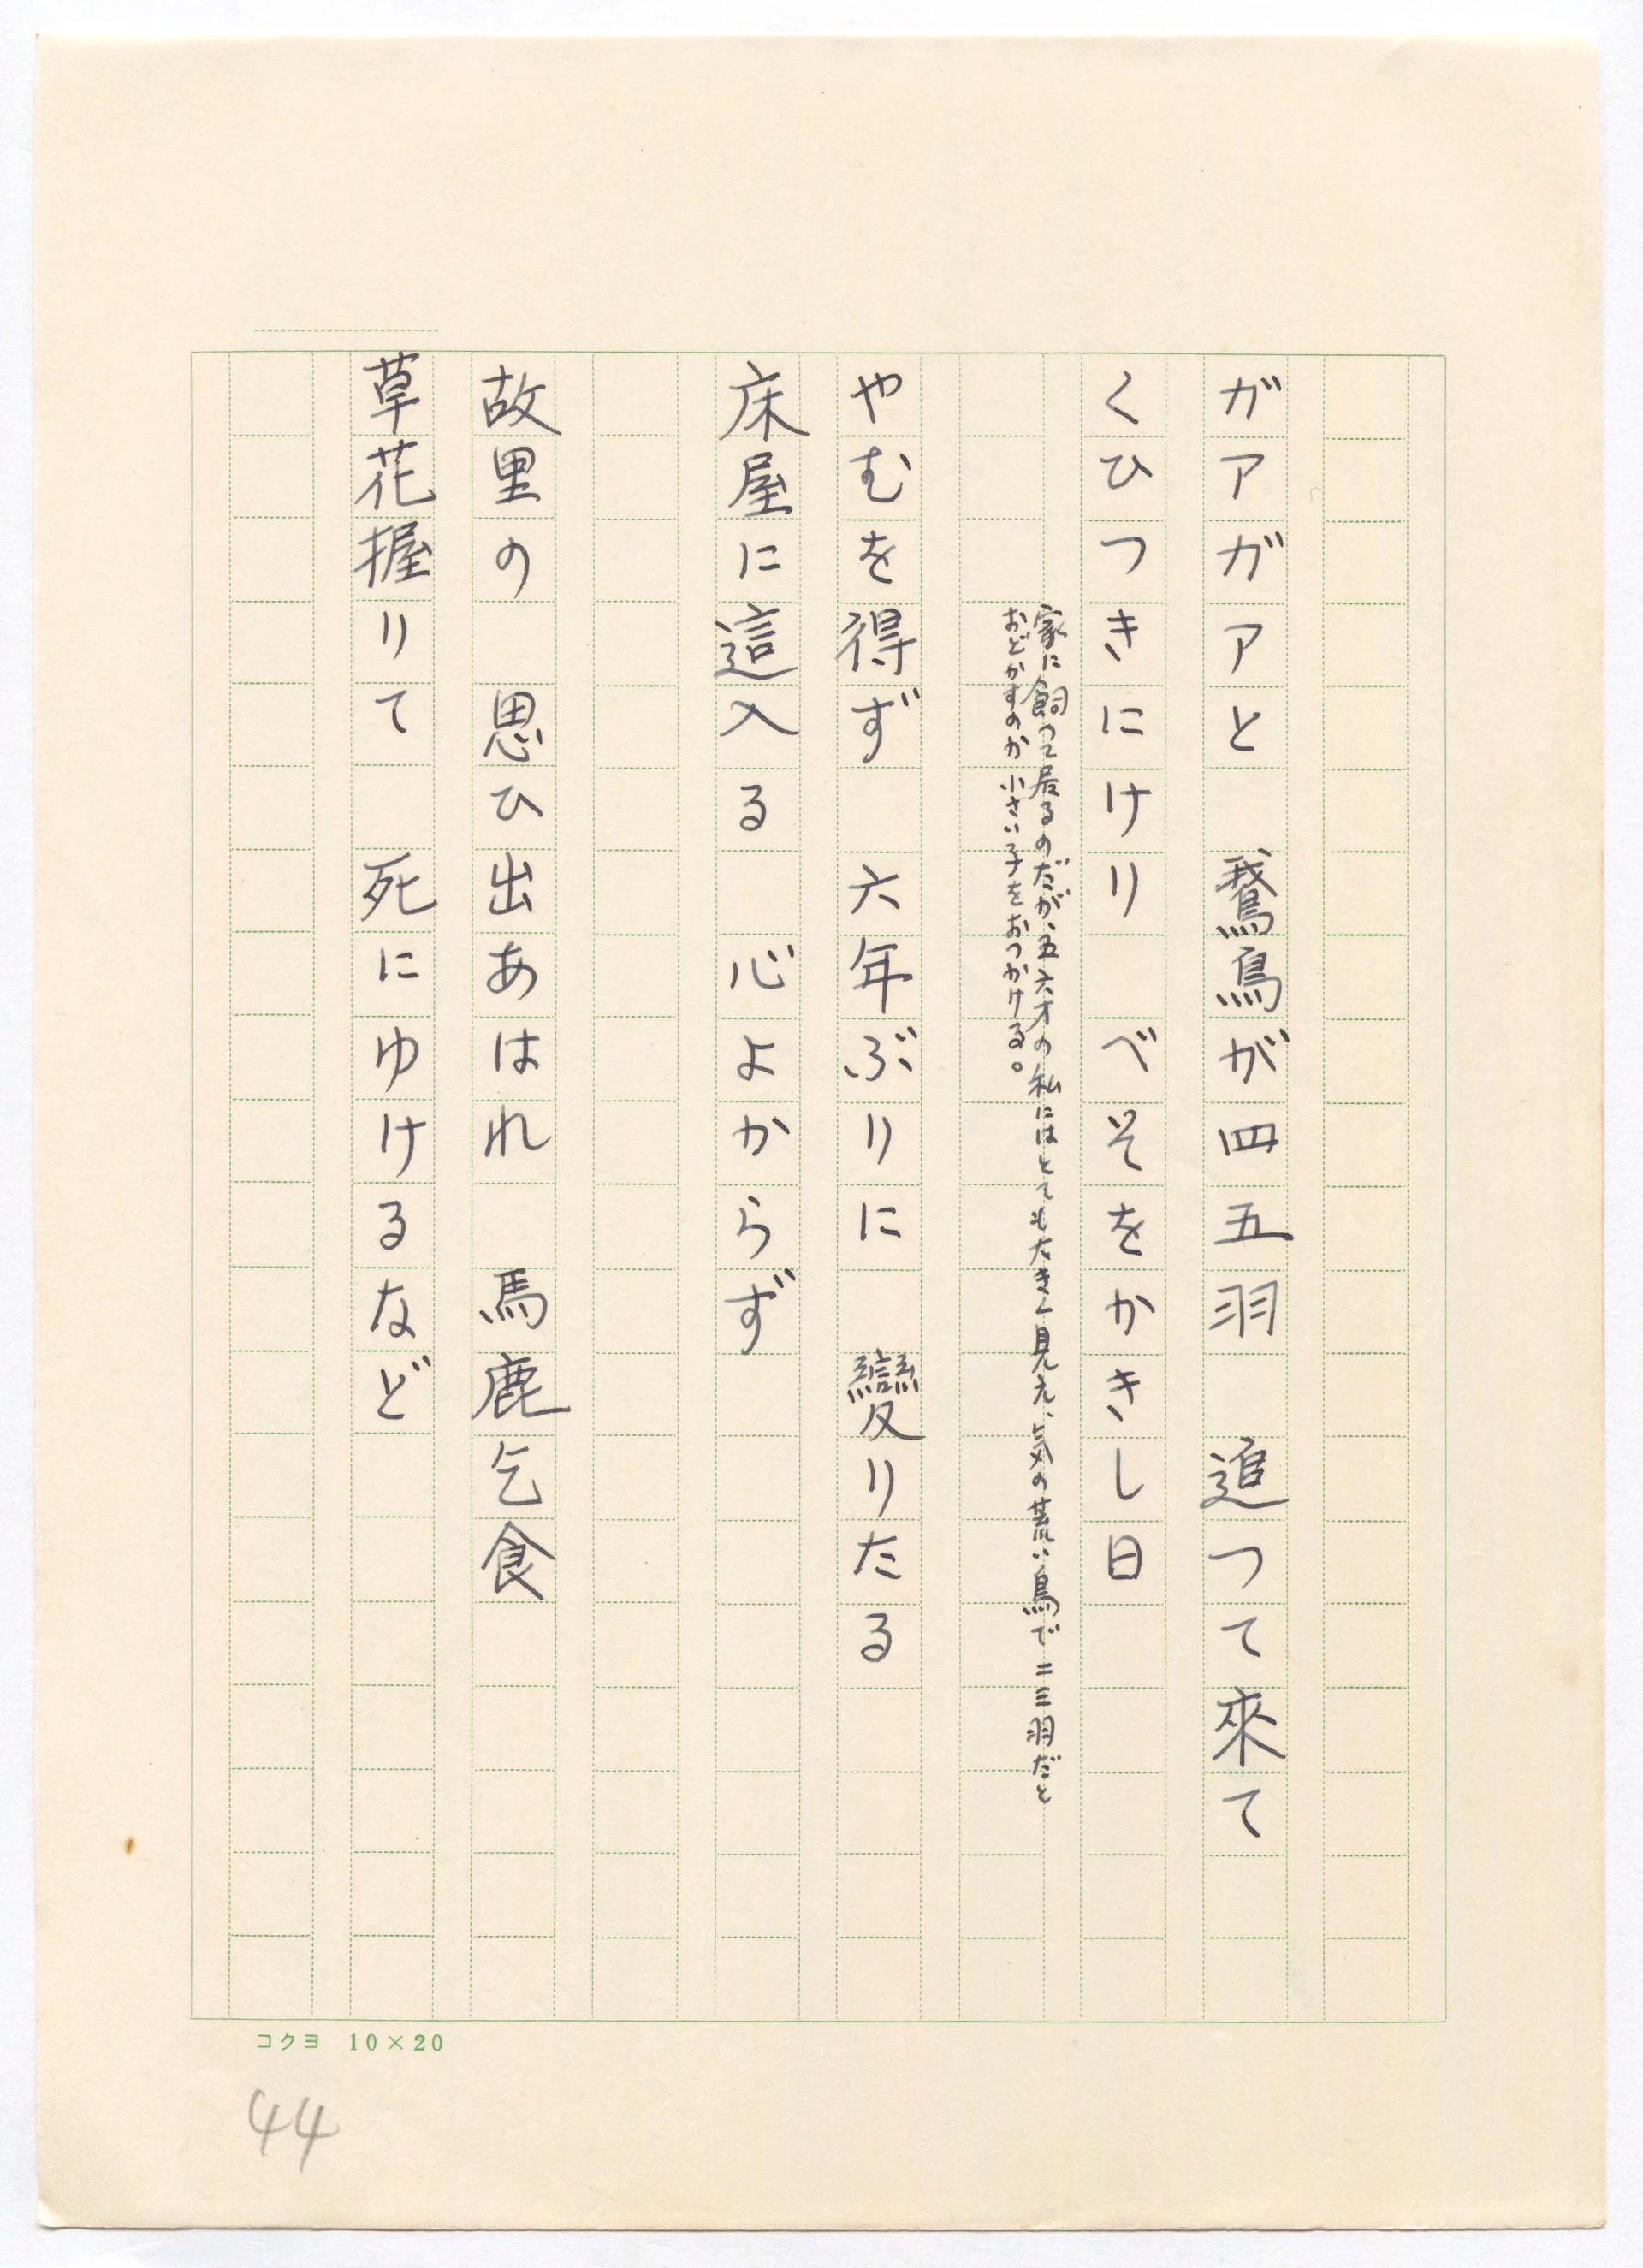 ガアガアと　鵞鳥が四五羽　追つて來て
くひつきにけり　べそをかきし日
家に飼つて居るのだが、五六才の私にはとても大きく見え、気の荒い鳥で二三羽だと
おどかすのか小さい子をおつかける。
やむを得ず　六年ぶりに　變りたる
床屋に這入る　心よからず
故里の　思ひ出あはれ　馬鹿乞食
草花握りて　死にゆけるなど
コクヨ 10×20
44